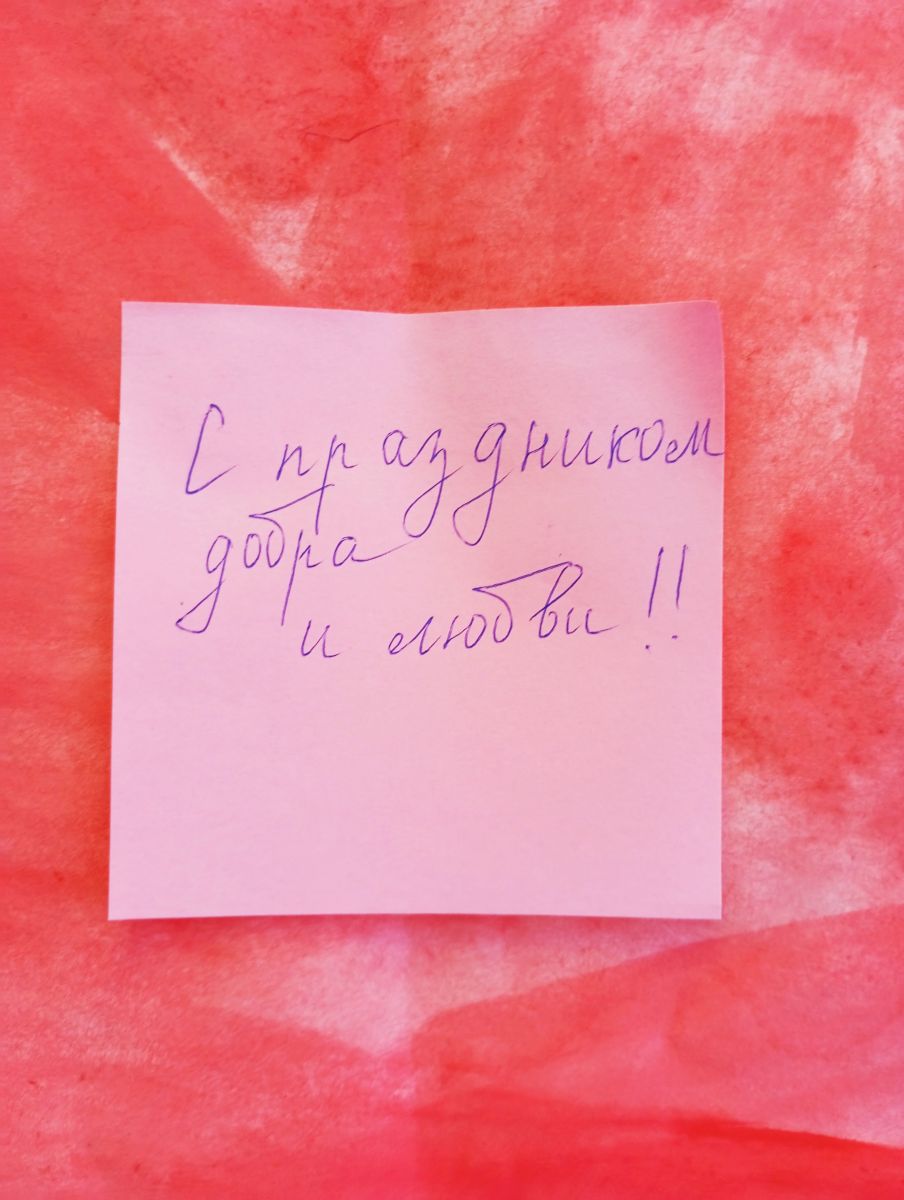 С праздником
добра
и любви!!